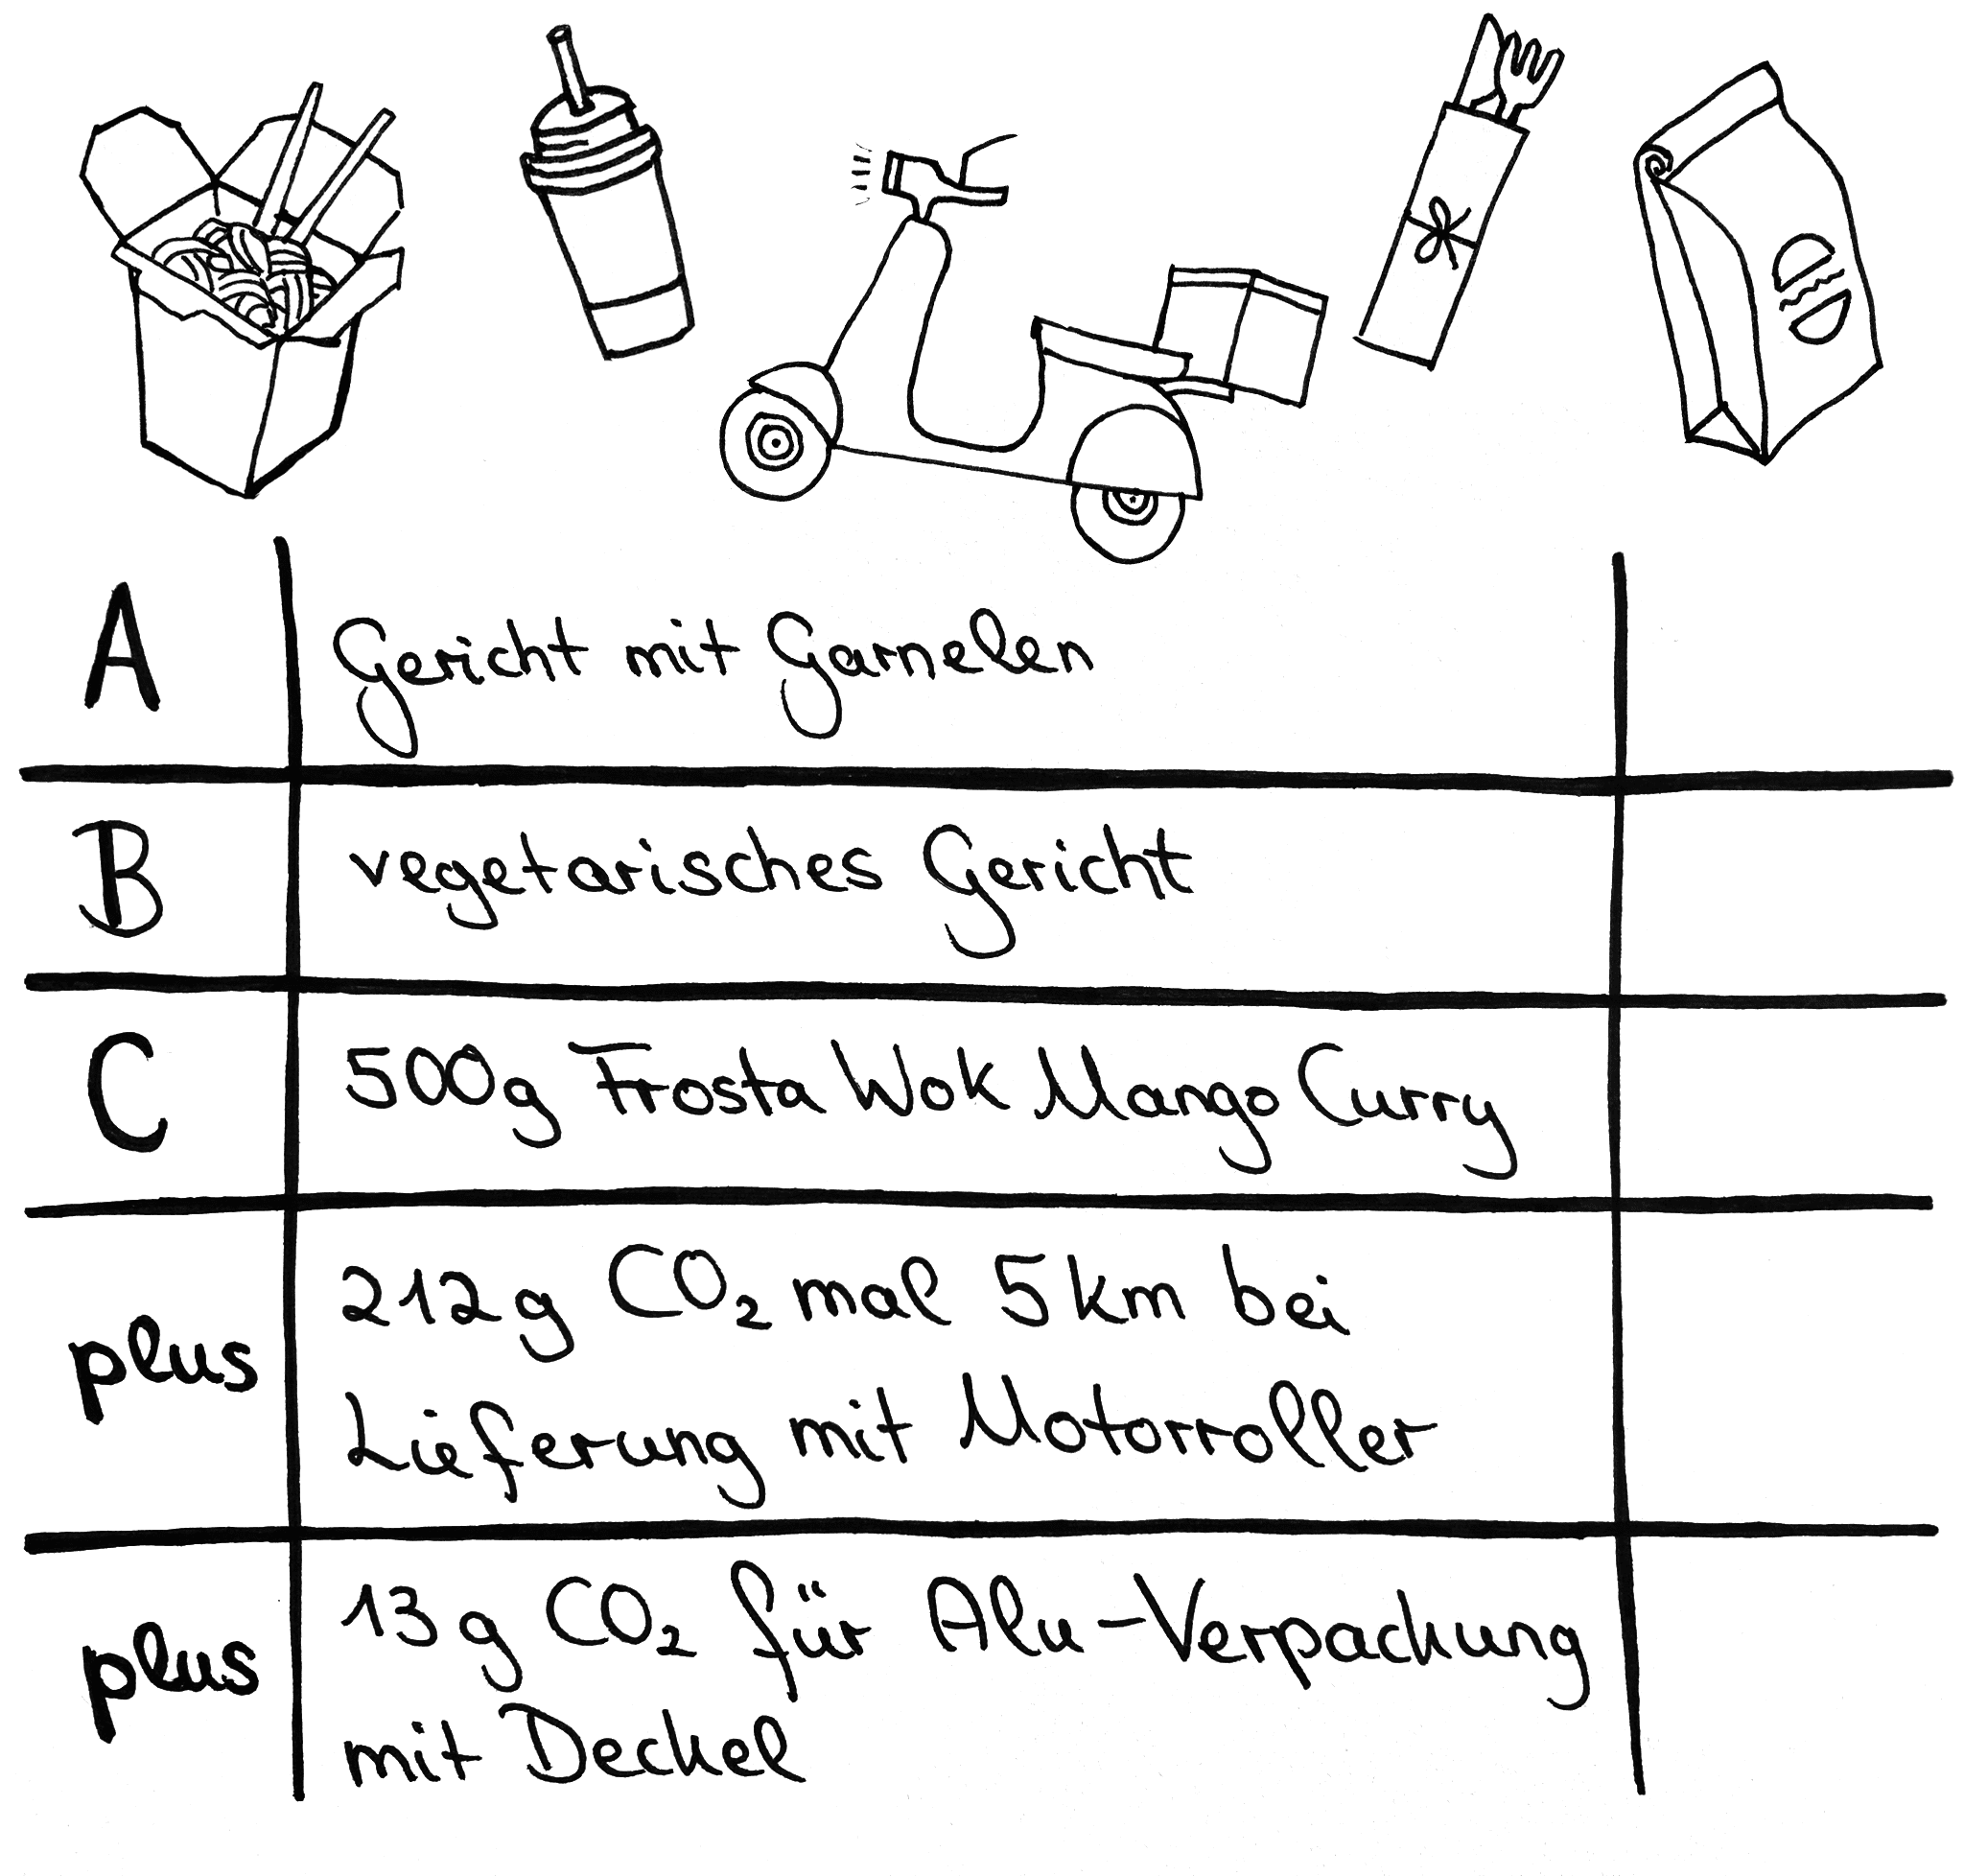 A Gericht mit Garnelen
B vegetarisches Gericht
C 500g Frosta Wok Mango Curry
plus 212g CO₂ mal 5km bei
Lieferung mit Motorroller
plus 13g CO₂ für Alu-Verpackung
mit Deckel